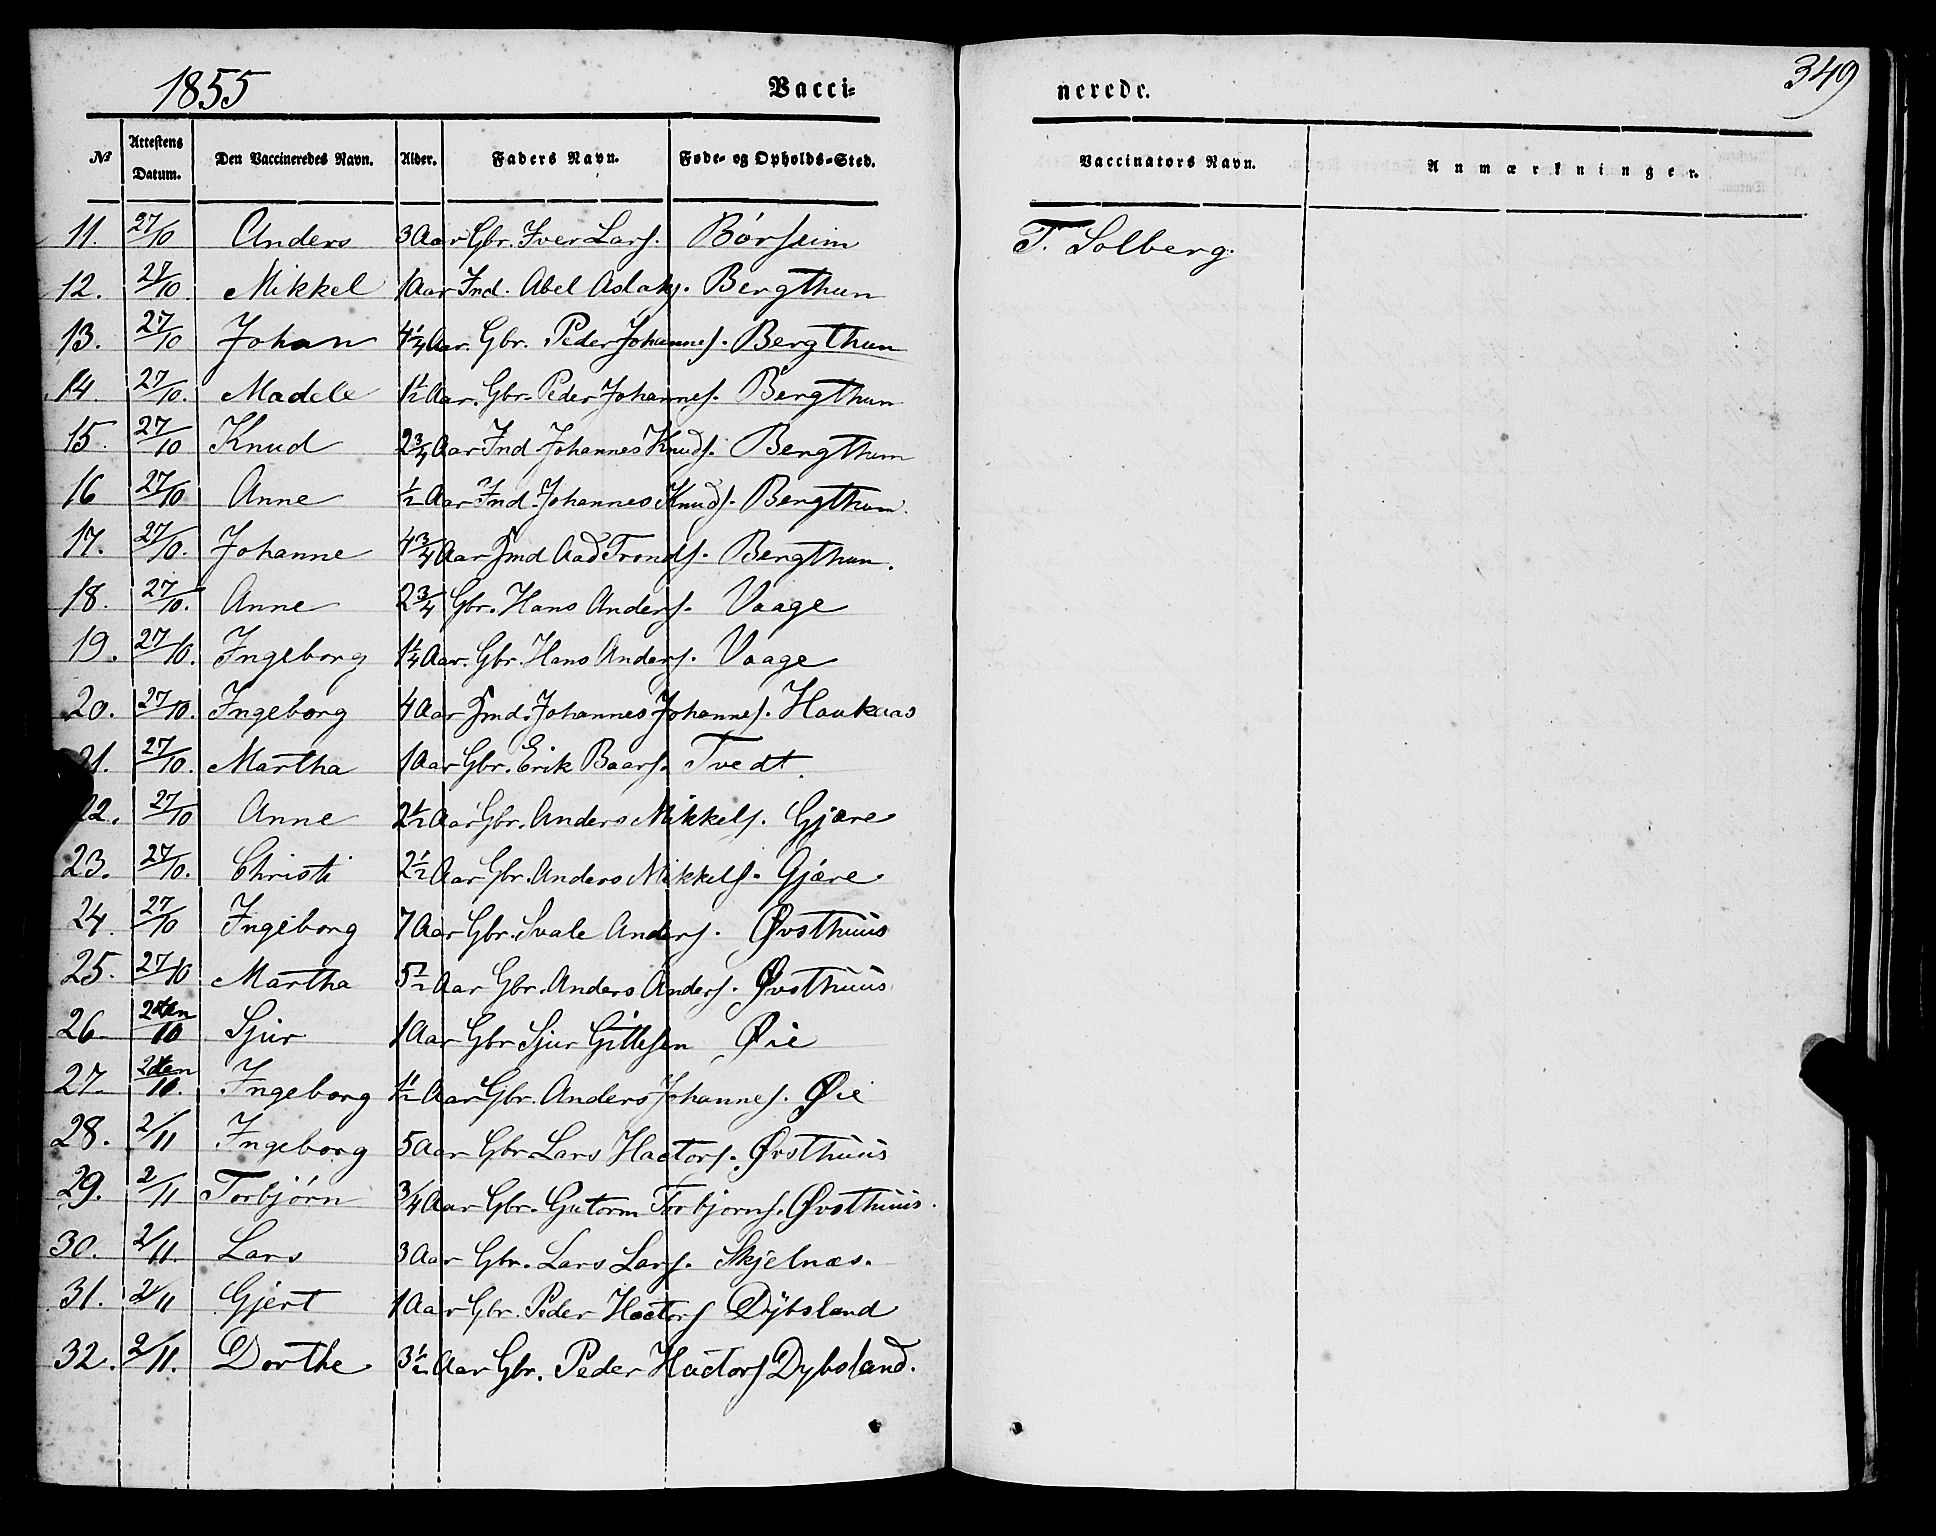 1855 Vacci- nerede. 349
No Attestens Datum. Den Vaccineredes Navn. Alder. Faders Navn. Føde- og Opholds-Sted. Vaccinators Navn. Anmærkninger.
11. 27/10 Anders 3 Aar Gbr. Iver Lars. Børseim T. Solberg.
12. 27/10. Mikkel 1 Aar Ind. Abel Aslaks. Bergthun
13. 27/10 Johan 4 1/4 Aar. Gbr. Peder Johannes. Bergthun
14. 27/10. Madele 1 1/2 Aar. Gbr. Peder Johannes. Bergthun
15. 27/10 Knud 2 3/4 Aar Ind Johannes Knuds. Bergthun
16 27/10 Anne 1/2 Aar Ind. Johannes Knuds. Bergthun.
17. 27/10. Johanne 4 3/4 Aar Ind Aad Tronds. Bergthun.
18. 27/10. Anne 2 3/4 Gbr. Hans Anders. Vaage
19. 27/10. Ingeborg 1 1/4 Aar. Gbr. Hans Anders. Vaage
20. 27/10. Ingeborg 4 Aar Ind. Johannes Johannes. Haukaas
21. 27/10. Martha 1 Aar Gbr. Erik Baars. Tvedt.
22. 27/10 Anne 2 1/2 Aar Gbr. Anders Mikkels. Gjære
23. 27/10. Christi 2 1/2 Aar Gbr. Anders Mikkels. Gjære
24. 27/10 Ingeborg 7 Aar Gbr. Svale Anders. Øvsthuus
25. 27/10 Martha 5 1/2 Aar Gbr. Anders Anders. Øvsthuus
26. /10 Sjur 1 Aar Gbr Sjur Gittlesen Øie
27. /10. Ingeborg 1 1/2 Aar Gbr. Anders Johannes. Øie
28. 2/11 Ingeborg 5 Aar Gbr Lars Hactors. Øvsthuus
29. 2/11 Torbjørn 3/4 Aar Gbr. Gutorm Torbjørns. Øvsthuus.
30. 2/11. Lars 3 Aar Gbr. Lars Lars. Skjelnæs.
31. 2/11 Gjert 1 Aar Gbr. Peder Hactors Dybsland
32. 2/11. Dorthe 3 1/2 Aar Gbr. Peder Hactors Dybsland.